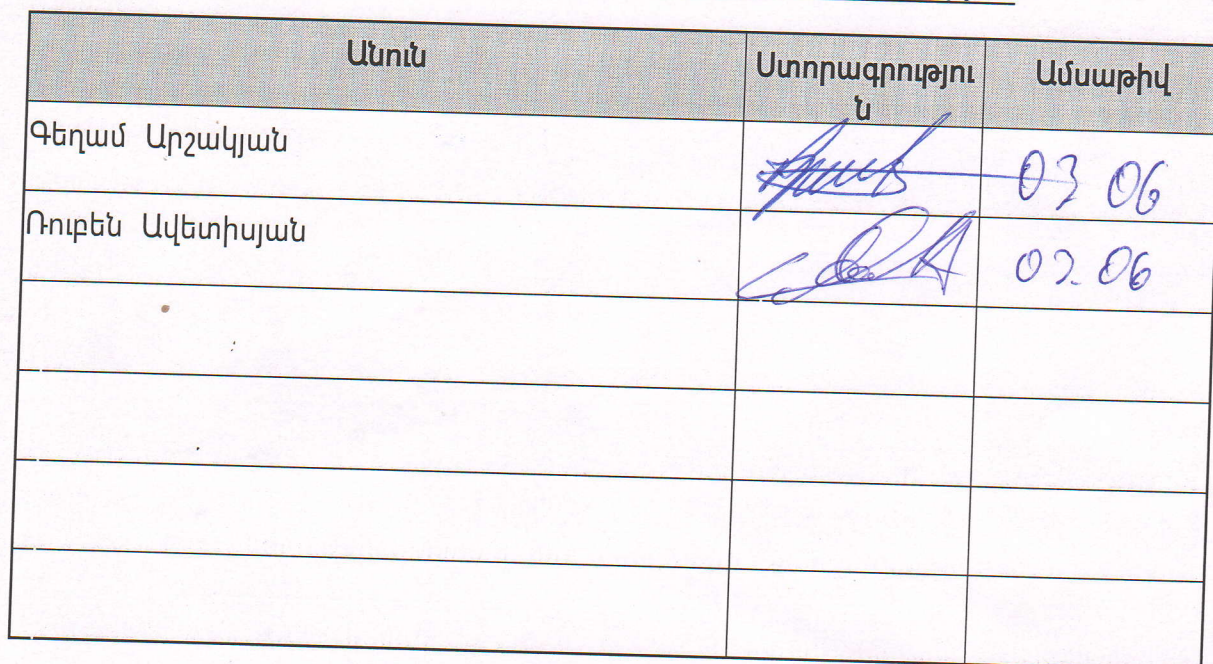 Անուն
Ստորագրությու
ն
Ամսաթիվ
Գեղամ Արշակյան
03 06
Ռուբեն Ավետիսյան
03.06